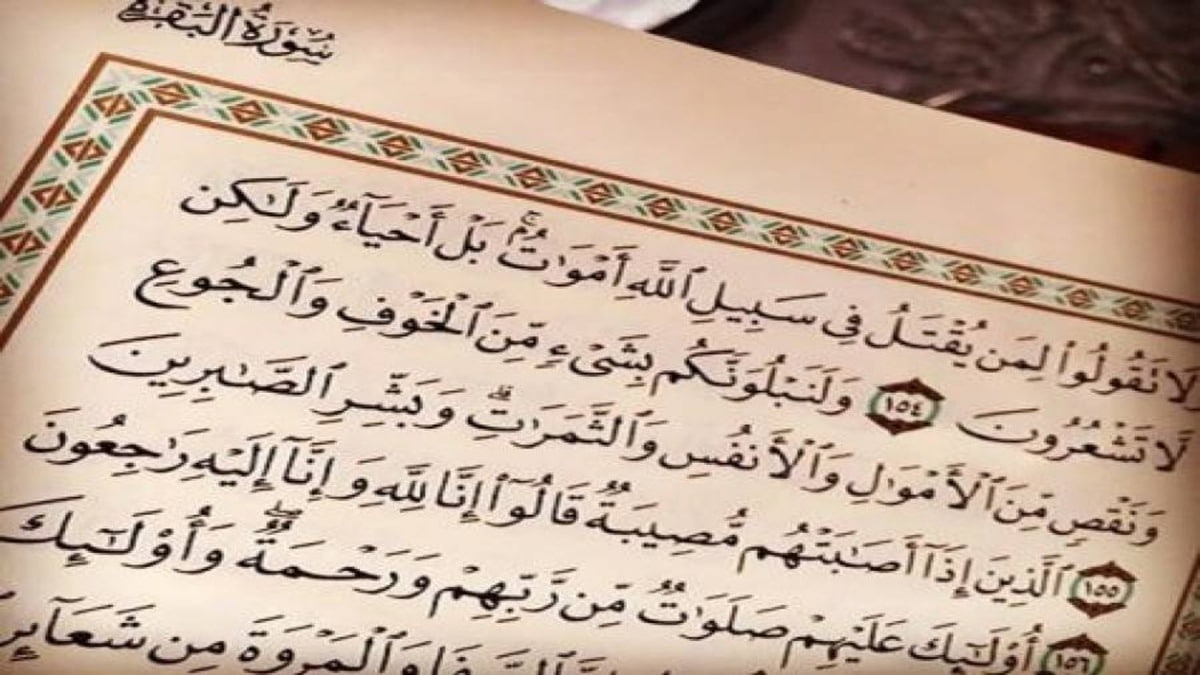 سُورَةُ البَقَرَةِ
لَا تَقُولُوا۟ لِمَن يُقْتَلُ فِى سَبِيلِ ٱللَّهِ أَمْوَٰتٌۢ ۚ بَلْ أَحْيَآءٌ وَلَـٰكِن
لَّا تَشْعُرُونَ ١٥٤ وَلَنَبْلُوَنَّكُم بِشَىْءٍ مِّنَ ٱلْخَوْفِ وَٱلْجُوعِ
وَنَقْصٍ مِّنَ ٱلْأَمْوَٰلِ وَٱلْأَنفُسِ وَٱلثَّمَرَٰتِ ۗ وَبَشِّرِ ٱلصَّـٰبِرِينَ
١٥٥ ٱلَّذِينَ إِذَآ أَصَـٰبَتْهُم مُّصِيبَةٌ قَالُوٓا۟ إِنَّا لِلَّهِ وَإِنَّآ إِلَيْهِ رَٰجِعُونَ
١٥٦ أُو۟لَـٰٓئِكَ عَلَيْهِمْ صَلَوَٰتٌ مِّن رَّبِّهِمْ وَرَحْمَةٌ ۖ وَأُو۟لَـٰٓئِكَ
وَٱلْمَرْوَةَ مِن شَعَآئِرِ